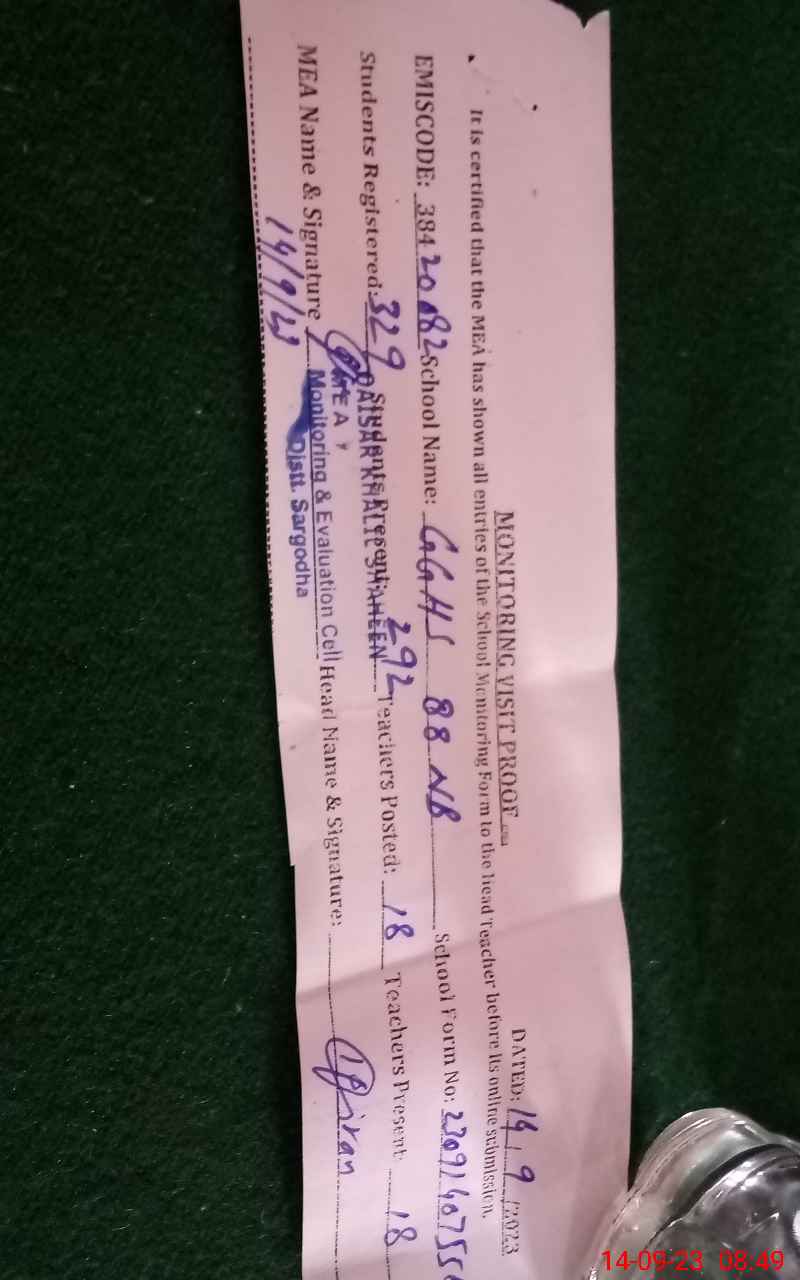 MONITORING VISIT PROOF
DATED: 14/9/2023
It is certified that the MEA has shown all entries of the School Monitoring Form to the Head Teacher before its online submission.
EMISCODE: 38420082 School Name: GGHS 88 NB School Form No: 230914075
Students Registered: 329 Students Present: 292 Teachers Posted: 18 Teachers Present 18
QAISAR KHALIL SHAHEEN
MEA
MEA Name & Signature Monitoring & Evaluation Cell Head Name & Signature:
Distt. Sargodha
14/9/23
14-09-23 08:49